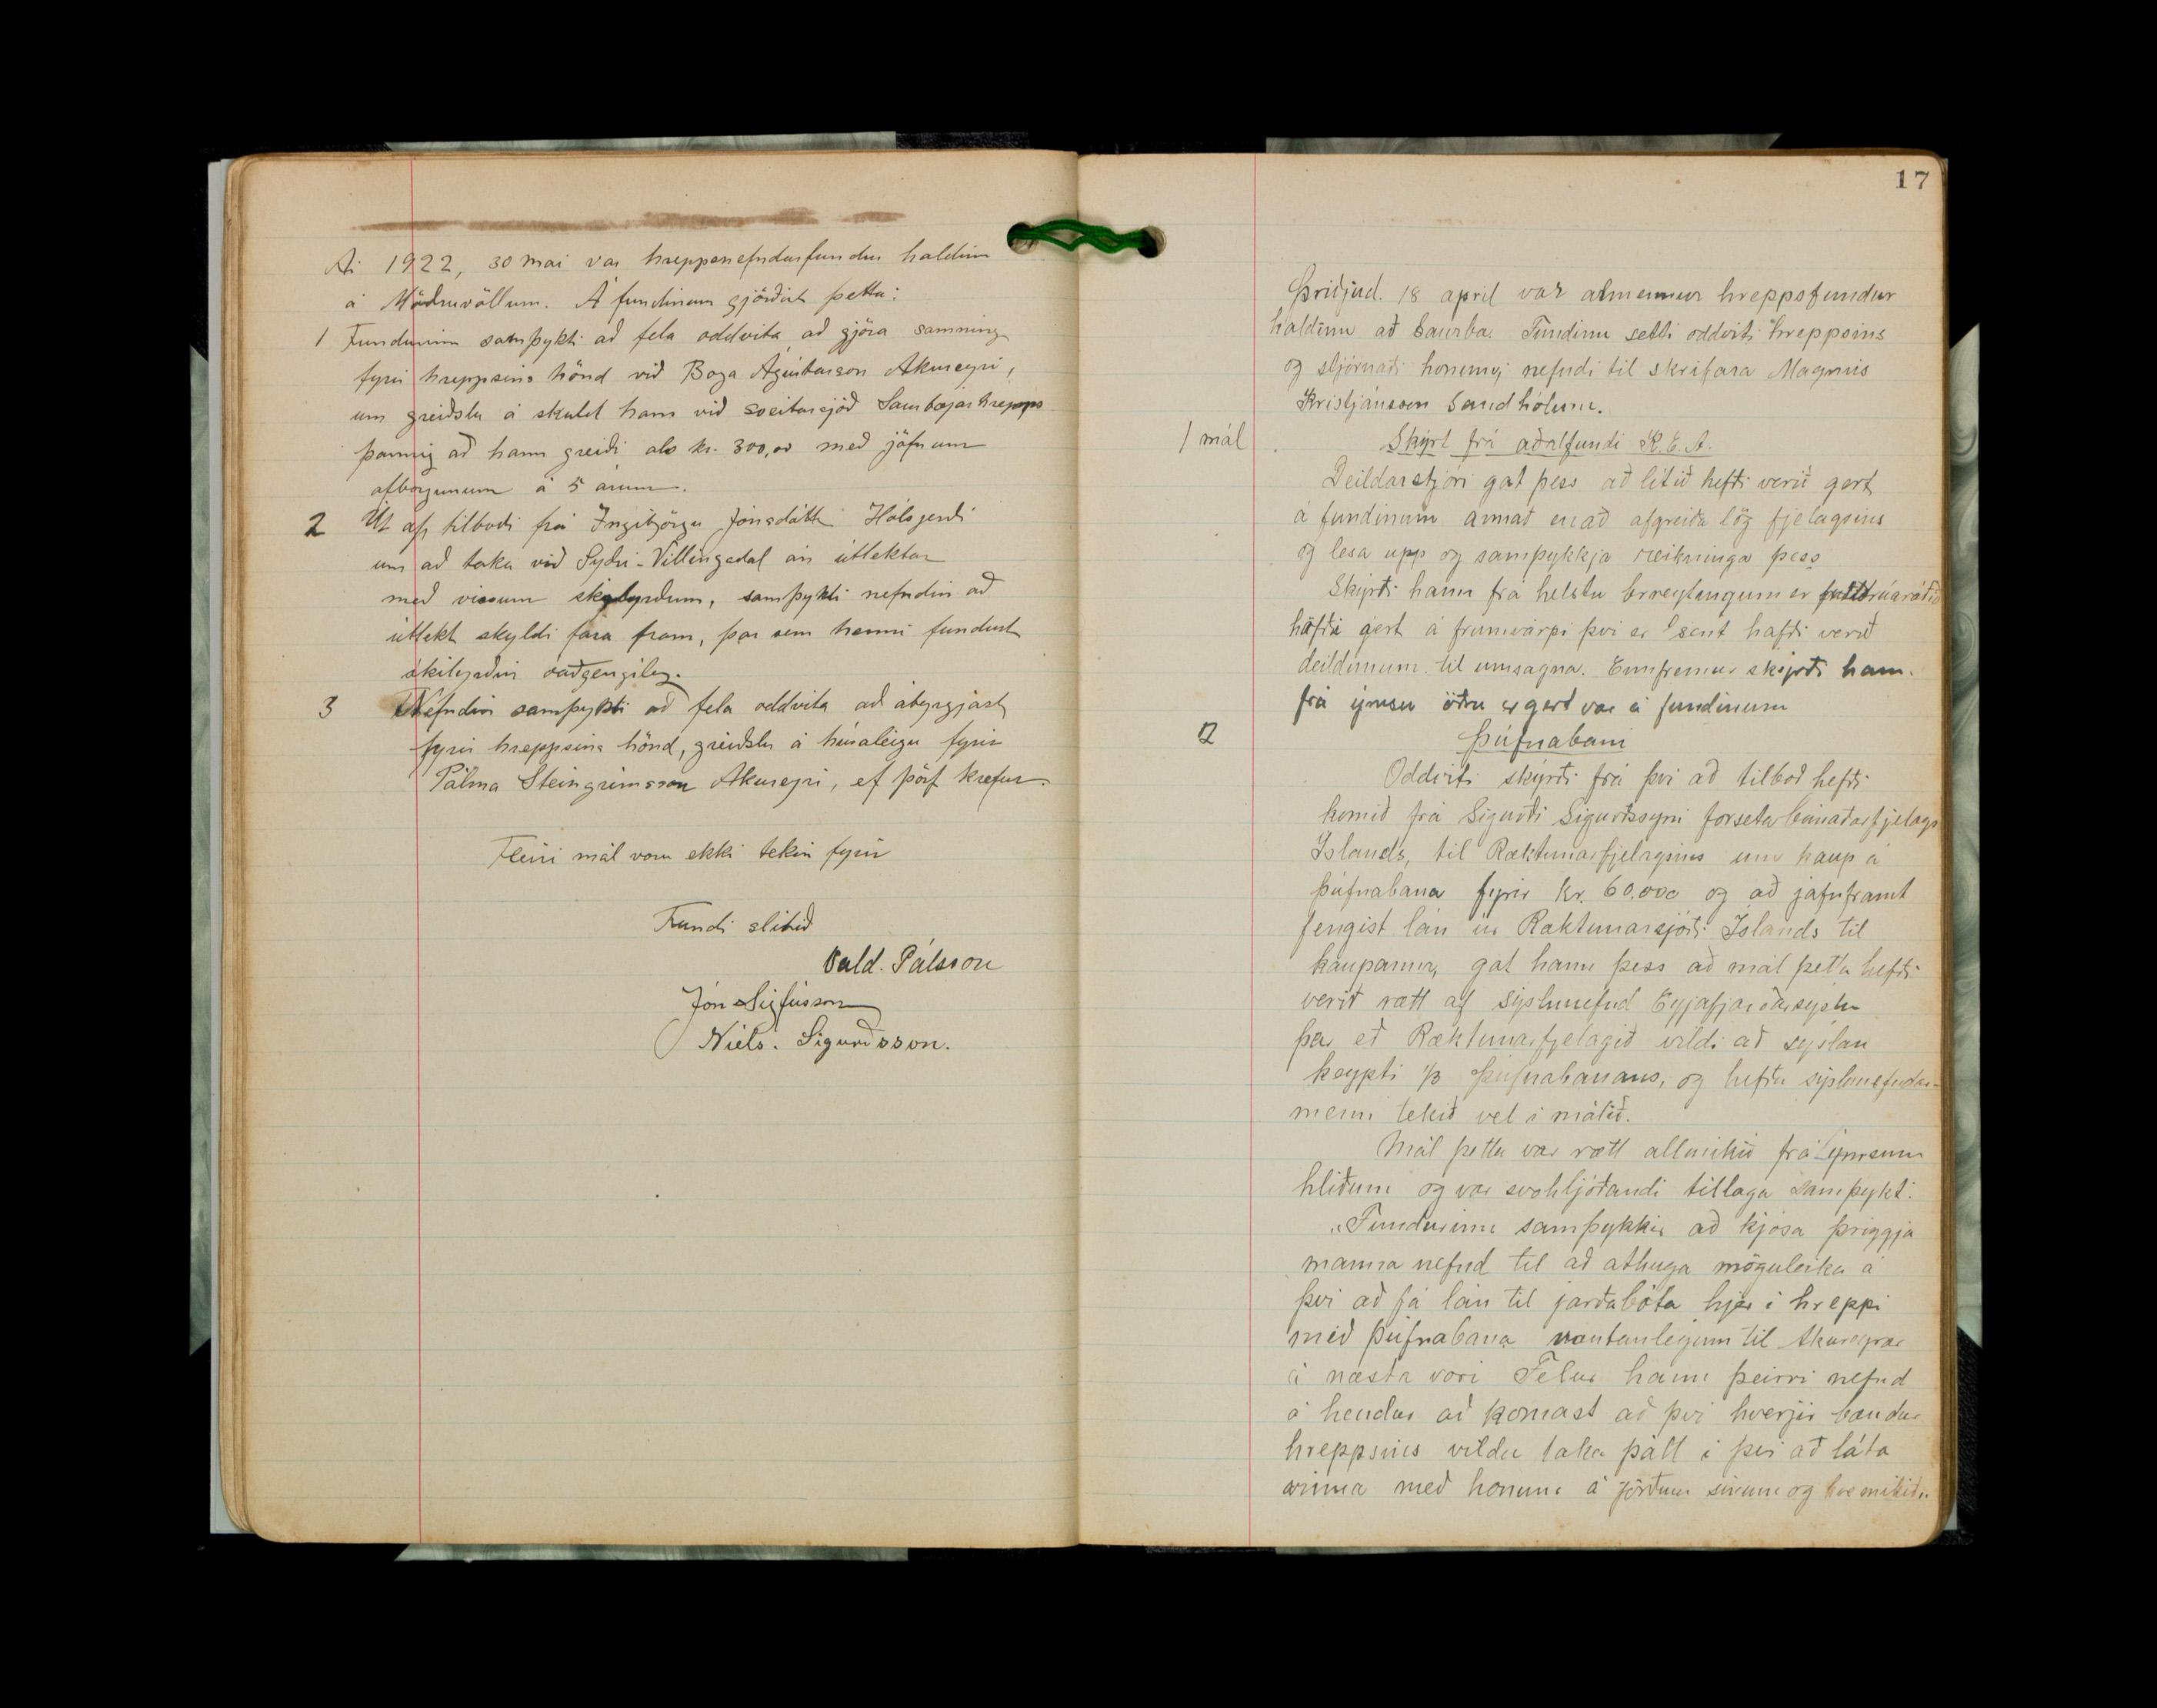 Ár 1922, 30 mai var hreppsnefndarfundur haldinn
á Möðruvöllum. Á fundinum gjörðist þetta:
1 Fundurinn samþykti að fela oddvita að gjöra samning
fyrir hreppsins hönd við Boga Ágústsson Akureyri,
um greiðslu á skuld hans við sveitarsjóð Saurbæjarhrepps
þannig að hann greiði als kr. 300,00 með jöfnum
afborgunum á 5 árum.
2 Út af tilboði frá Ingibjörgu Jónsdóttir Hálsgerði
um að taka við Syðri-Villingadal án úttektar
með vissum skylyrðum, samþykti nefndin að
úttekt skyldi fara fram, þar sem henni fundust
skilyrðin óaðgengileg.
3 Nefndin samþykti að fela oddvita að ábyrgjast
fyrir hreppsins hönd, greiðslu á húsaleigu fyrir
Pálma Steingrímsson Akureyri, ef þörf krefur.
Fleiri mál voru ekki tekin fyrir
Fundi slitið
Vald. Pálsson
Jón Sigfússon
Níels. Sigurðsson.
17
Þriðjud. 18 april var almennur hreppsfundur
haldinn að Saurbæ. Fundinn setti oddviti hreppsins
og stjórnaði honum; nefndi til skrifara Magnús
Kristjánsson Sandhólum.
1 mál Skýrt frá aðalfundi K.E.A.
Deildarstjóri gat þess að lítið hefði verið gert
á fundinum annað en að afgreiða lög fjelagsins
og lesa upp og samþykkja reikninga þess
Skýrði hann frá helstu breytingum er fulltrúaráðið
hafði gert á frumvarpi því er sent hafði verið
deildinum til umsagna. Ennfremur skýrði hann
frá ýmsu öðru er gert var á fundinum
2 Þúfnabani
Oddviti skýrði frá því að tilboð hefði
komið frá Sigurði Sigurðssyni forseta búnaðarfjelags
Íslands, til Ræktunarfjelagsins um kaup á
Þúfnabana fyrir kr. 60,000 og að jafnframt
fengist lán úr Ræktunarsjóði Íslands til
kaupanna, gat hann þess að mál þetta hefði
verið rætt af sýslunefnd Eyjafjarðarsýslu
þar eð Ræktunarfjelagið vildi að sýslan
keypti 1/3 Þúfnabanans, og hefðu sýslunefndar-
menn tekið vel í málið.
Mál þetta var rætt allmikið frá ýmsum
hliðum og var svohljóðandi tillaga samþykt:
„Fundurinn samþykkir að kjósa þriggja
manna nefnd til að athuga möguleika á
því að fá lán til jarðabóta hjer í hreppi
með þúfnabana væntanlegum til Akureyrar
á næsta vori Felur hann þeirri nefnd
á hendur að komast að því hverjir bændur
hreppsins vildu taka þátt í því að láta
vinna með honum á jörðum sínum og hve mikið“